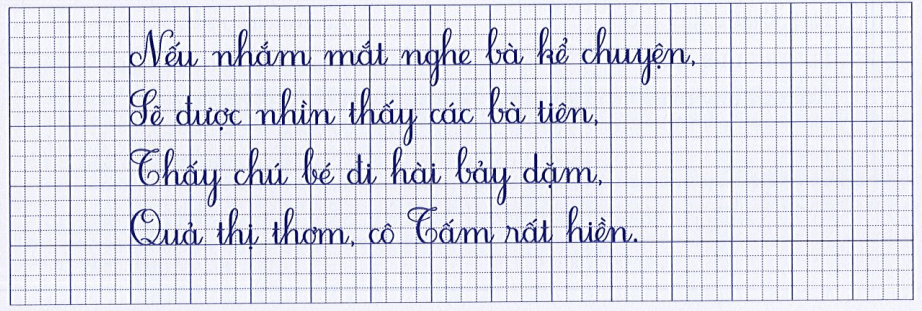 Nếu nhắm mắt nghe bà kể chuyện,
Sẽ được nhìn thấy các bà tiên,
Thấy chú bé đi hài bảy dặm,
Quả thị thơm, cô Tấm rất hiền.